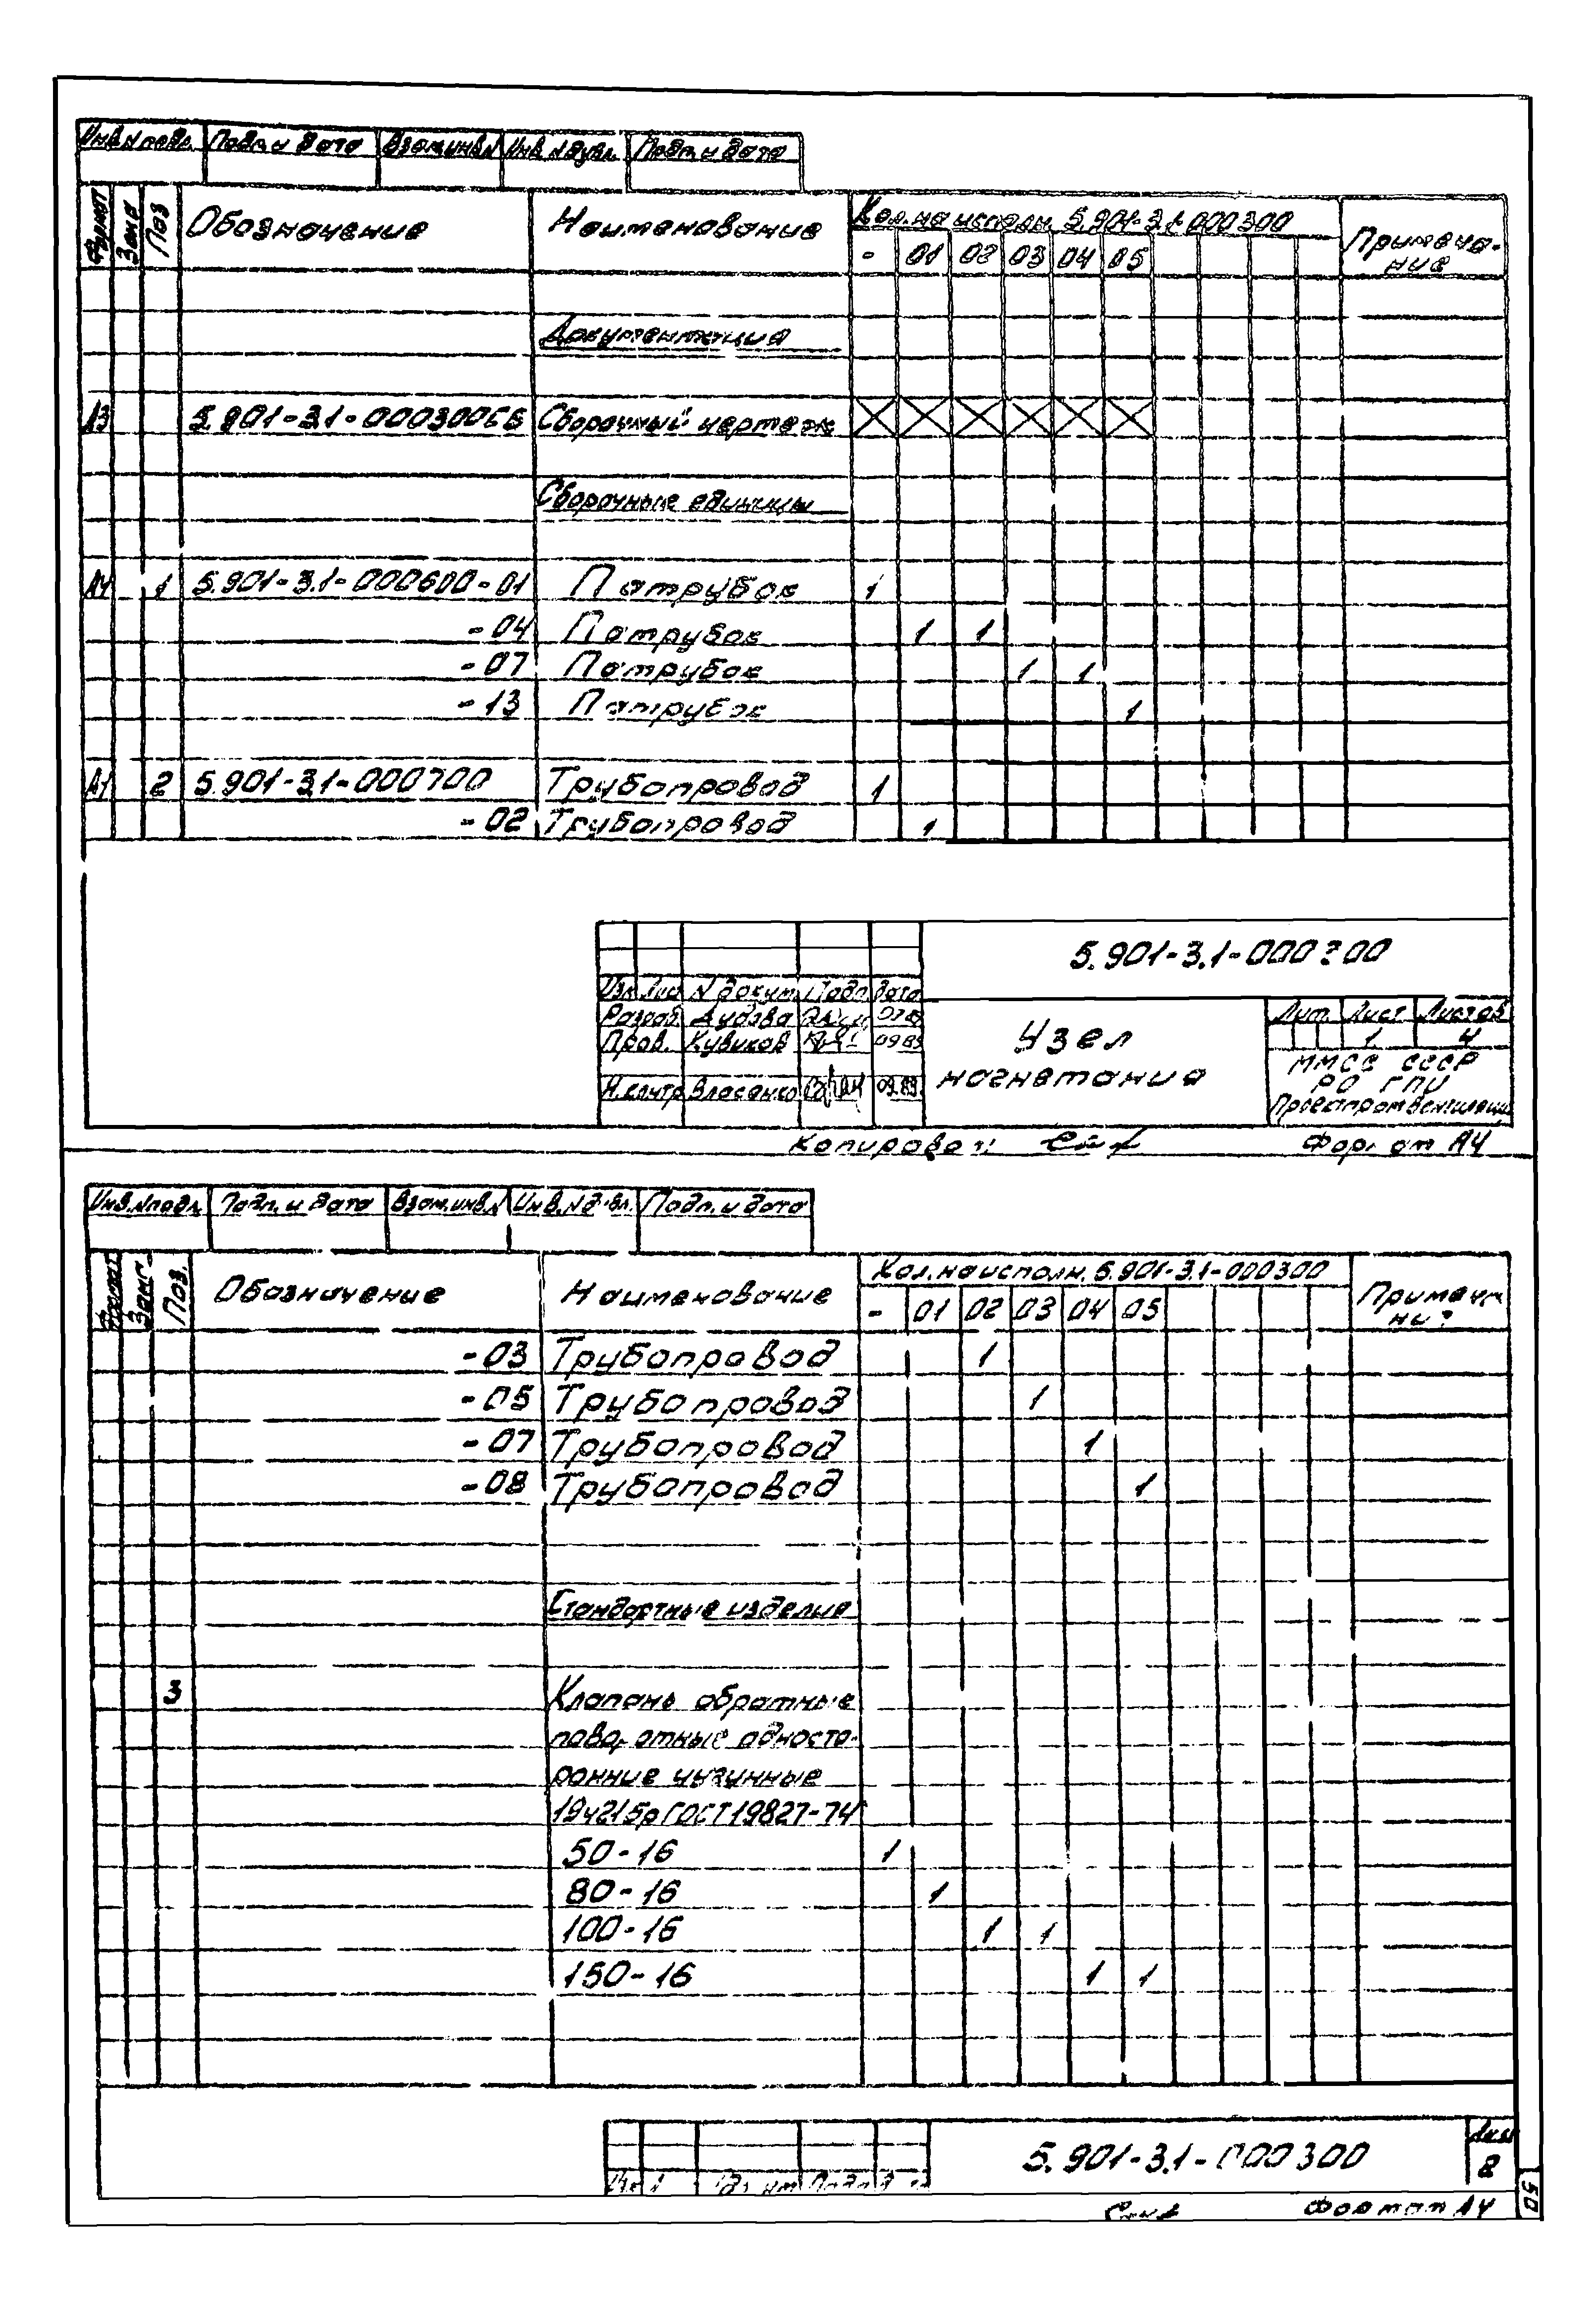 Инв.N подл. Подп. и дата Взам.инв.N Инв.N дубл. Подп. и дата
Формат Зона Поз Обозначение Наименование Кол. на исполн. 5.901-3.1-000300 Примеча-
- 01 02 03 04 05 ние
Документация
А3 5.901-3.1-000300СБ Сборочный чертеж
Сборочные единицы
А4 1 5.901-3.1-000600-01 Патрубок 1
-04 Патрубок 1 1
-07 Патрубок 1 1
-13 Патрубок 1
2 5.901-3.1-000700 Трубопровод 1
-02 Трубопровод 1
5.901-3.1-000300
Изм. Лис N докум. Подп. Дата
Разраб. Дудова
Пров. Кувиков 09.89
Н.контр Власенко 09.89.
Узел
нагнетания
Лит. Лист Листов
1 4
ММСС СССР
РО ГПИ
Проектпромвентиляция
Копировал: Формат А4
Инв.N подл. Подп. и дата Взам.инв.N Инв.N дубл. Подп. и дата
Формат Поз. Обозначение Наименование Кол. на исполн. 5.901-3.1-000300
- 01 02 03 04 05
-03 Трубопровод 1
-05 Трубопровод 1
-07 Трубопровод 1
-08 Трубопровод 1
Стандартные изделия
3 Клапаны обратные
поворотные односто-
ронние чугунные
19ч21бр ГОСТ 19827-74
50-16 1
80-16 1
100-16 1 1
150-16 1 1
5.901-3.1-000300
Лист
2
Формат А4
50